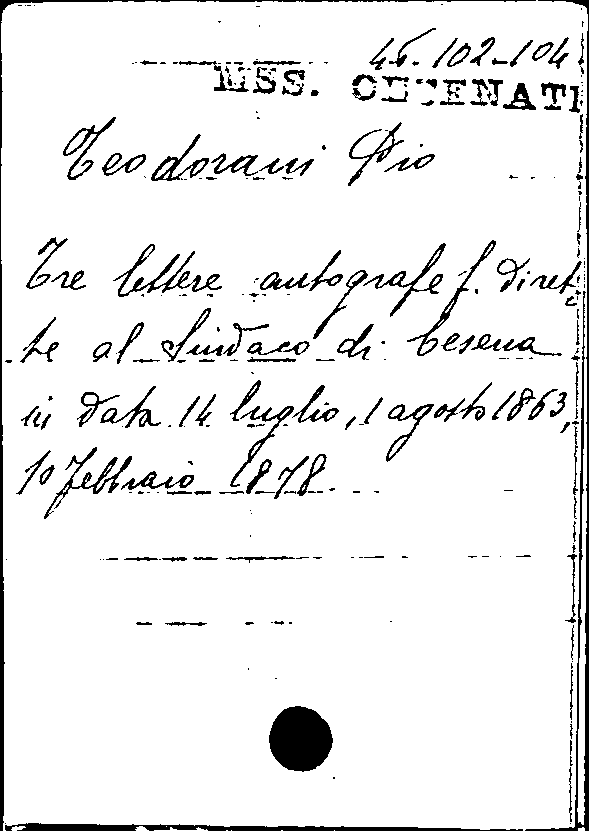 45.102-104
MSS. CESENATI
Teodorani Pio
Tre lettere autografe f. diret-
te al Sindaco di Cesena
in data 14 luglio, 1 agosto 1863,
10 febbraio 1878.